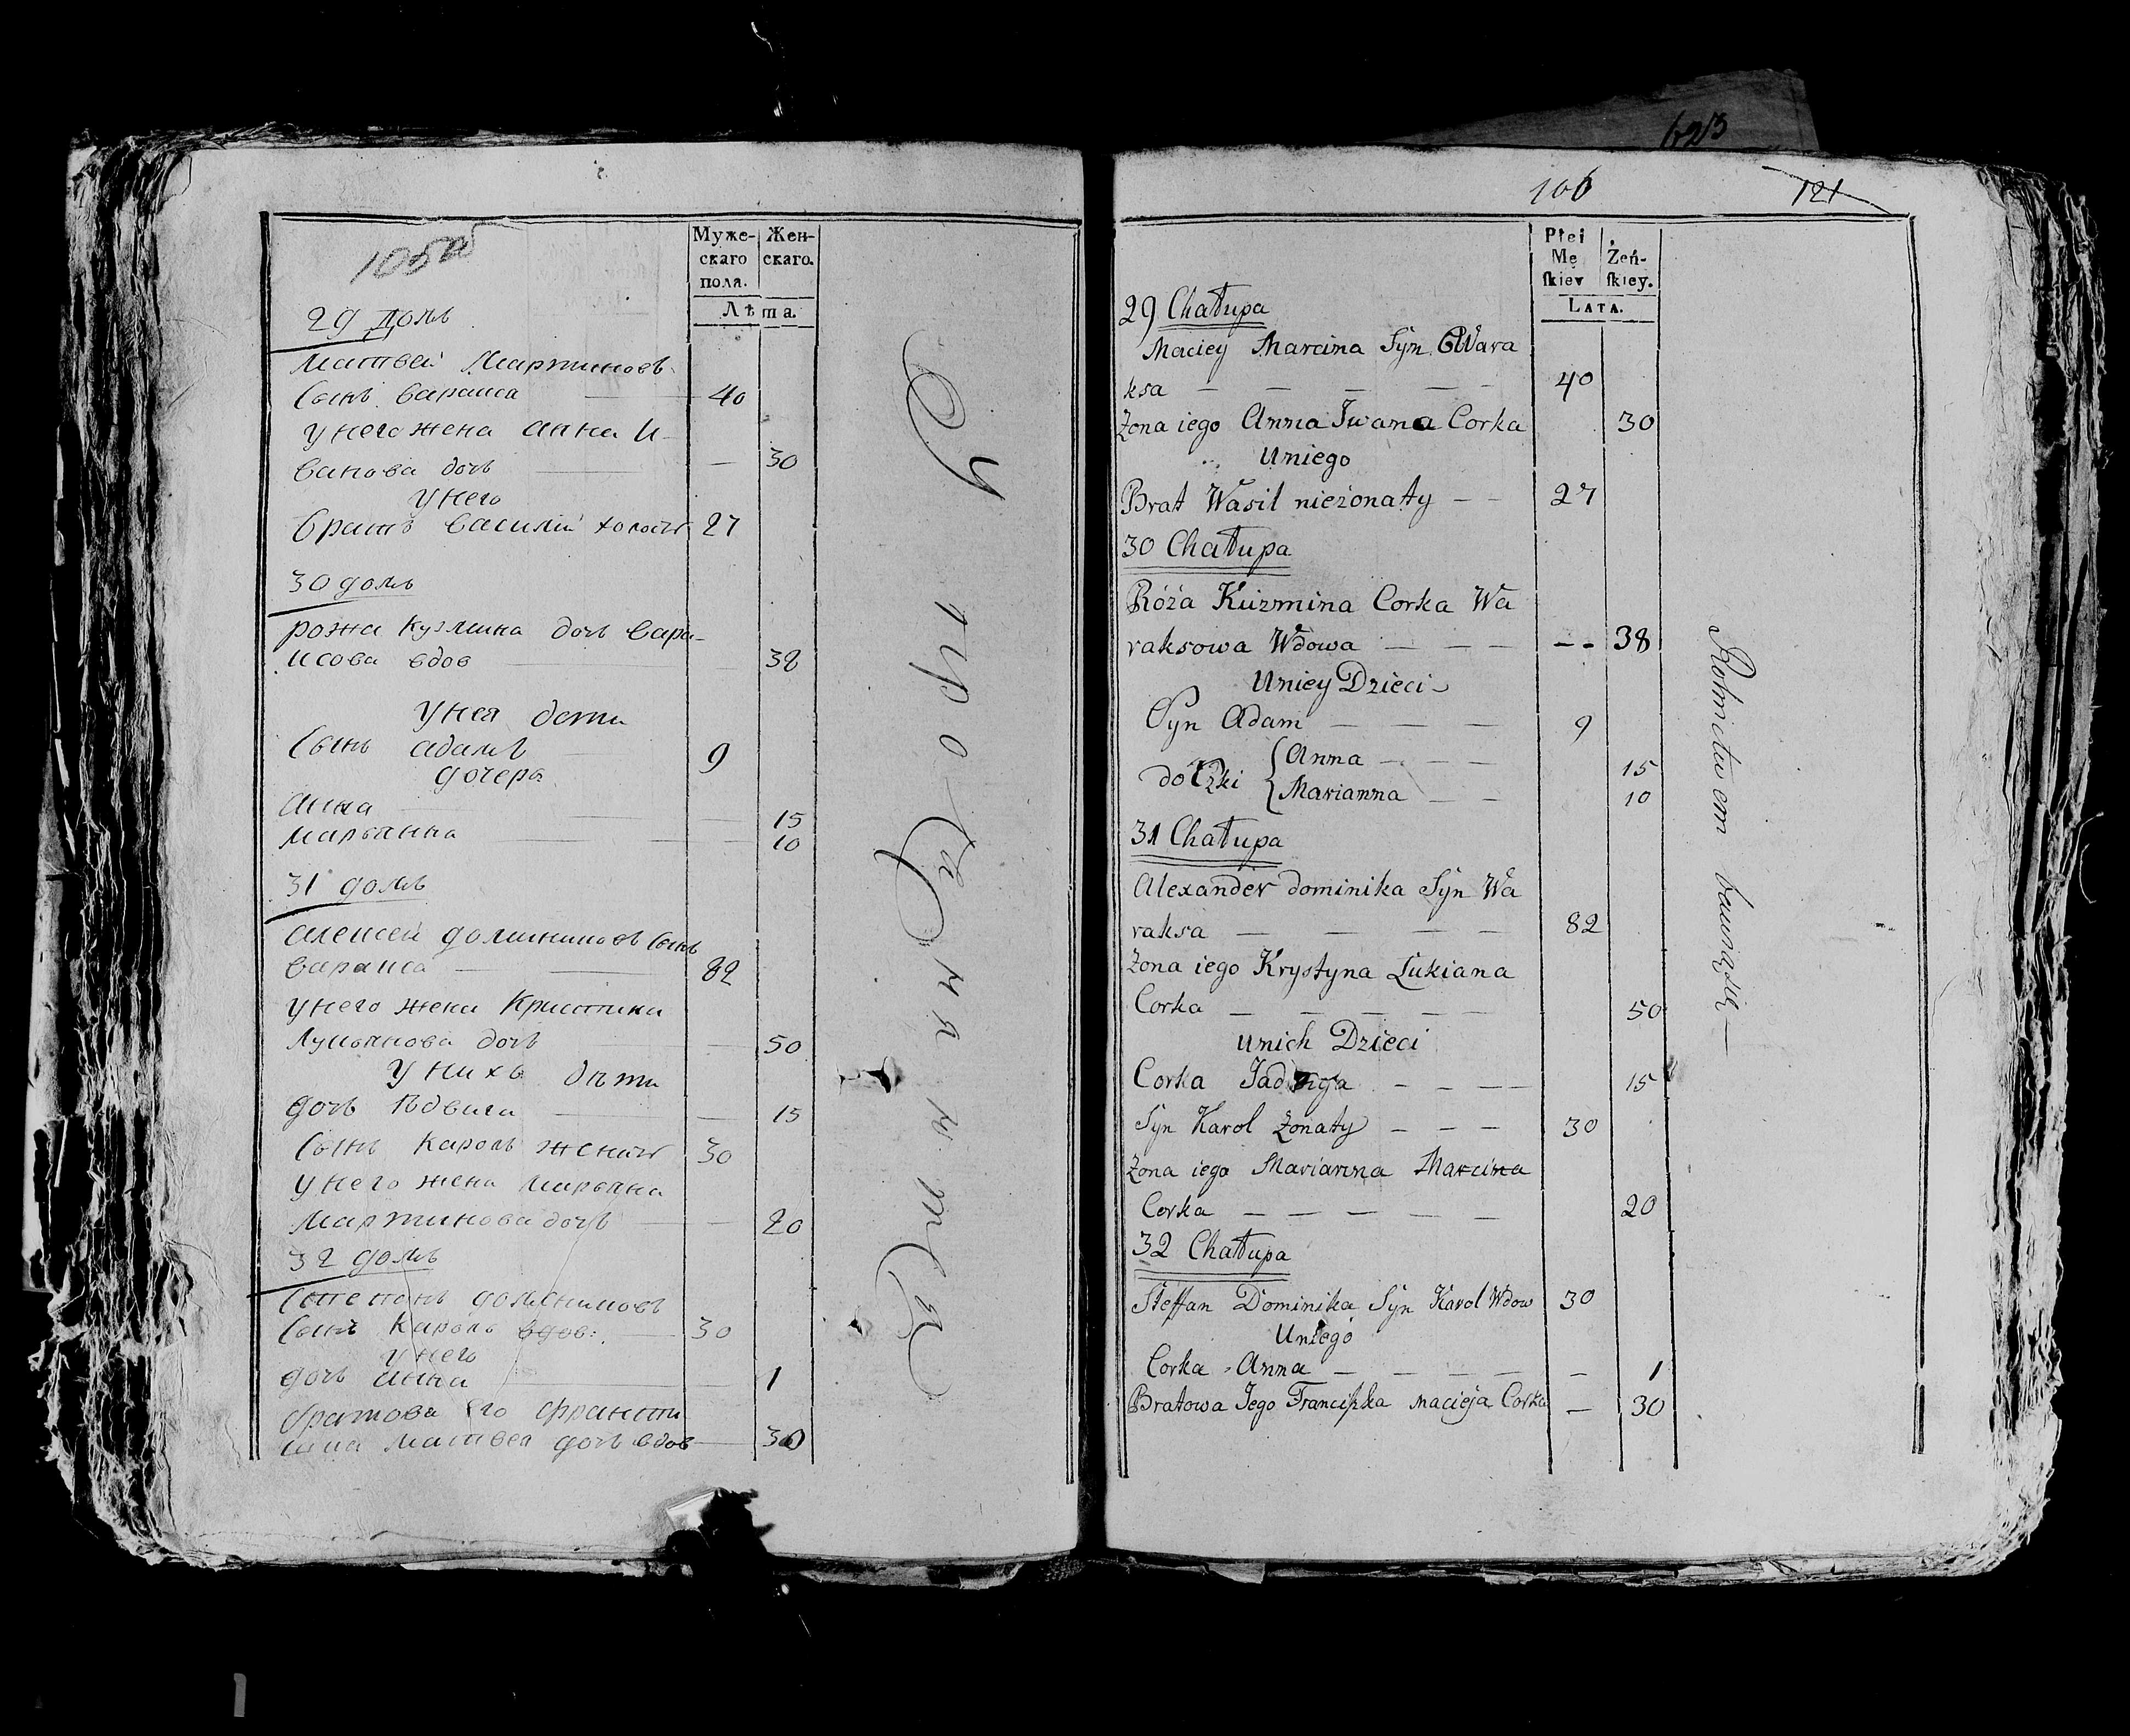 105об
Муже-
скаго
пола.
Жен-
скаго.
Лѣта.
29 домъ
матвей Мартиновъ
Сынъ варакса 40
у него жена анна и-
ванова дочь 30
у него
братъ василий холостъ 27
30 домъ
рожа кузмина дочь вара-
ксова вдов 38
у нея дети
Сынъ адамъ 9
дочери
анна 15
марьянна 10
31 домъ
алексей доминиковъ Сынъ
варакса 82
у него жена Кристина
Лукьянова дочь 50
у нихъ дѣти
дочь Ядвига 15
Сынъ Кароль женатъ 30
у него жена марьяна
Мартинова дочь 20
32 домъ
Степанъ доминиковъ
Сынъ Кароль вдов: 30
у него
дочь анна 1
братова его франци
шка матвея дочь вдов 30
106
121
Płci
Mę
ſkiey
Żeń-
ſkiey.
LATA.
29 Chałupa
Maciey Marcina Syn Wara
ksa — — — — 40
Żona iego Anna Iwana Corka 30
Uniego
Brat Wasil nieżonaty — — 27
30 Chałupa
Róża Kuzmina Corka Wa
raksowa Wdowa — — — -- 38
Uniey Dzieci
Syn Adam — — — 9
doczki { Anna — — — 15
Marianna — — 10
31 Chałupa
Alexander dominika Syn Wa
raksa — — — — 82
Żona iego Krystyna Lukiana
Corka — — — — — 50
unich Dzieci
Corka Jadwiga — — — — 15
Syn Karol Żonaty — — — 30
Żona iego Marianna Marcina
Corka — — — — — 20
32 Chałupa
Steffan Dominika Syn Karol Wdow 30
Uniego
Corka Anna — — — — — — 1
Bratowa Jego Franciſzka Macieja Corka — 30
Rolnictwem bawiąsię —